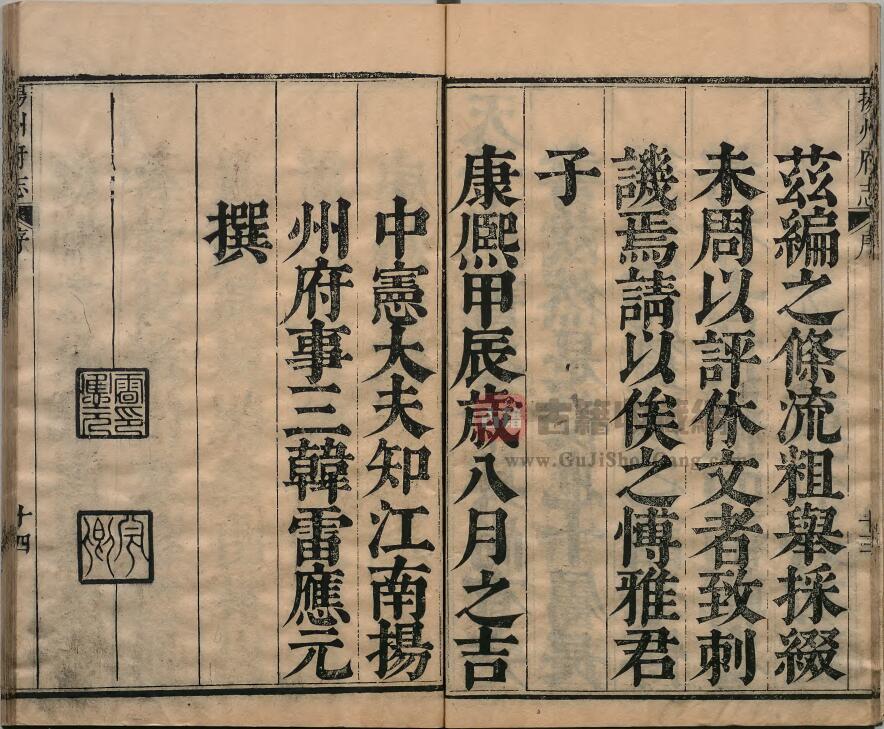 茲編之條流粗舉採綴
未周以評休文者致刺
譏焉請以俟之博雅君
子
康熙甲辰歲八月之吉
中憲大夫知江南揚
州府事三韓雷應元
撰
揚州府志
序
十三
揚州府志
序
十四
雷應元印
www.GuJiShouCang.com